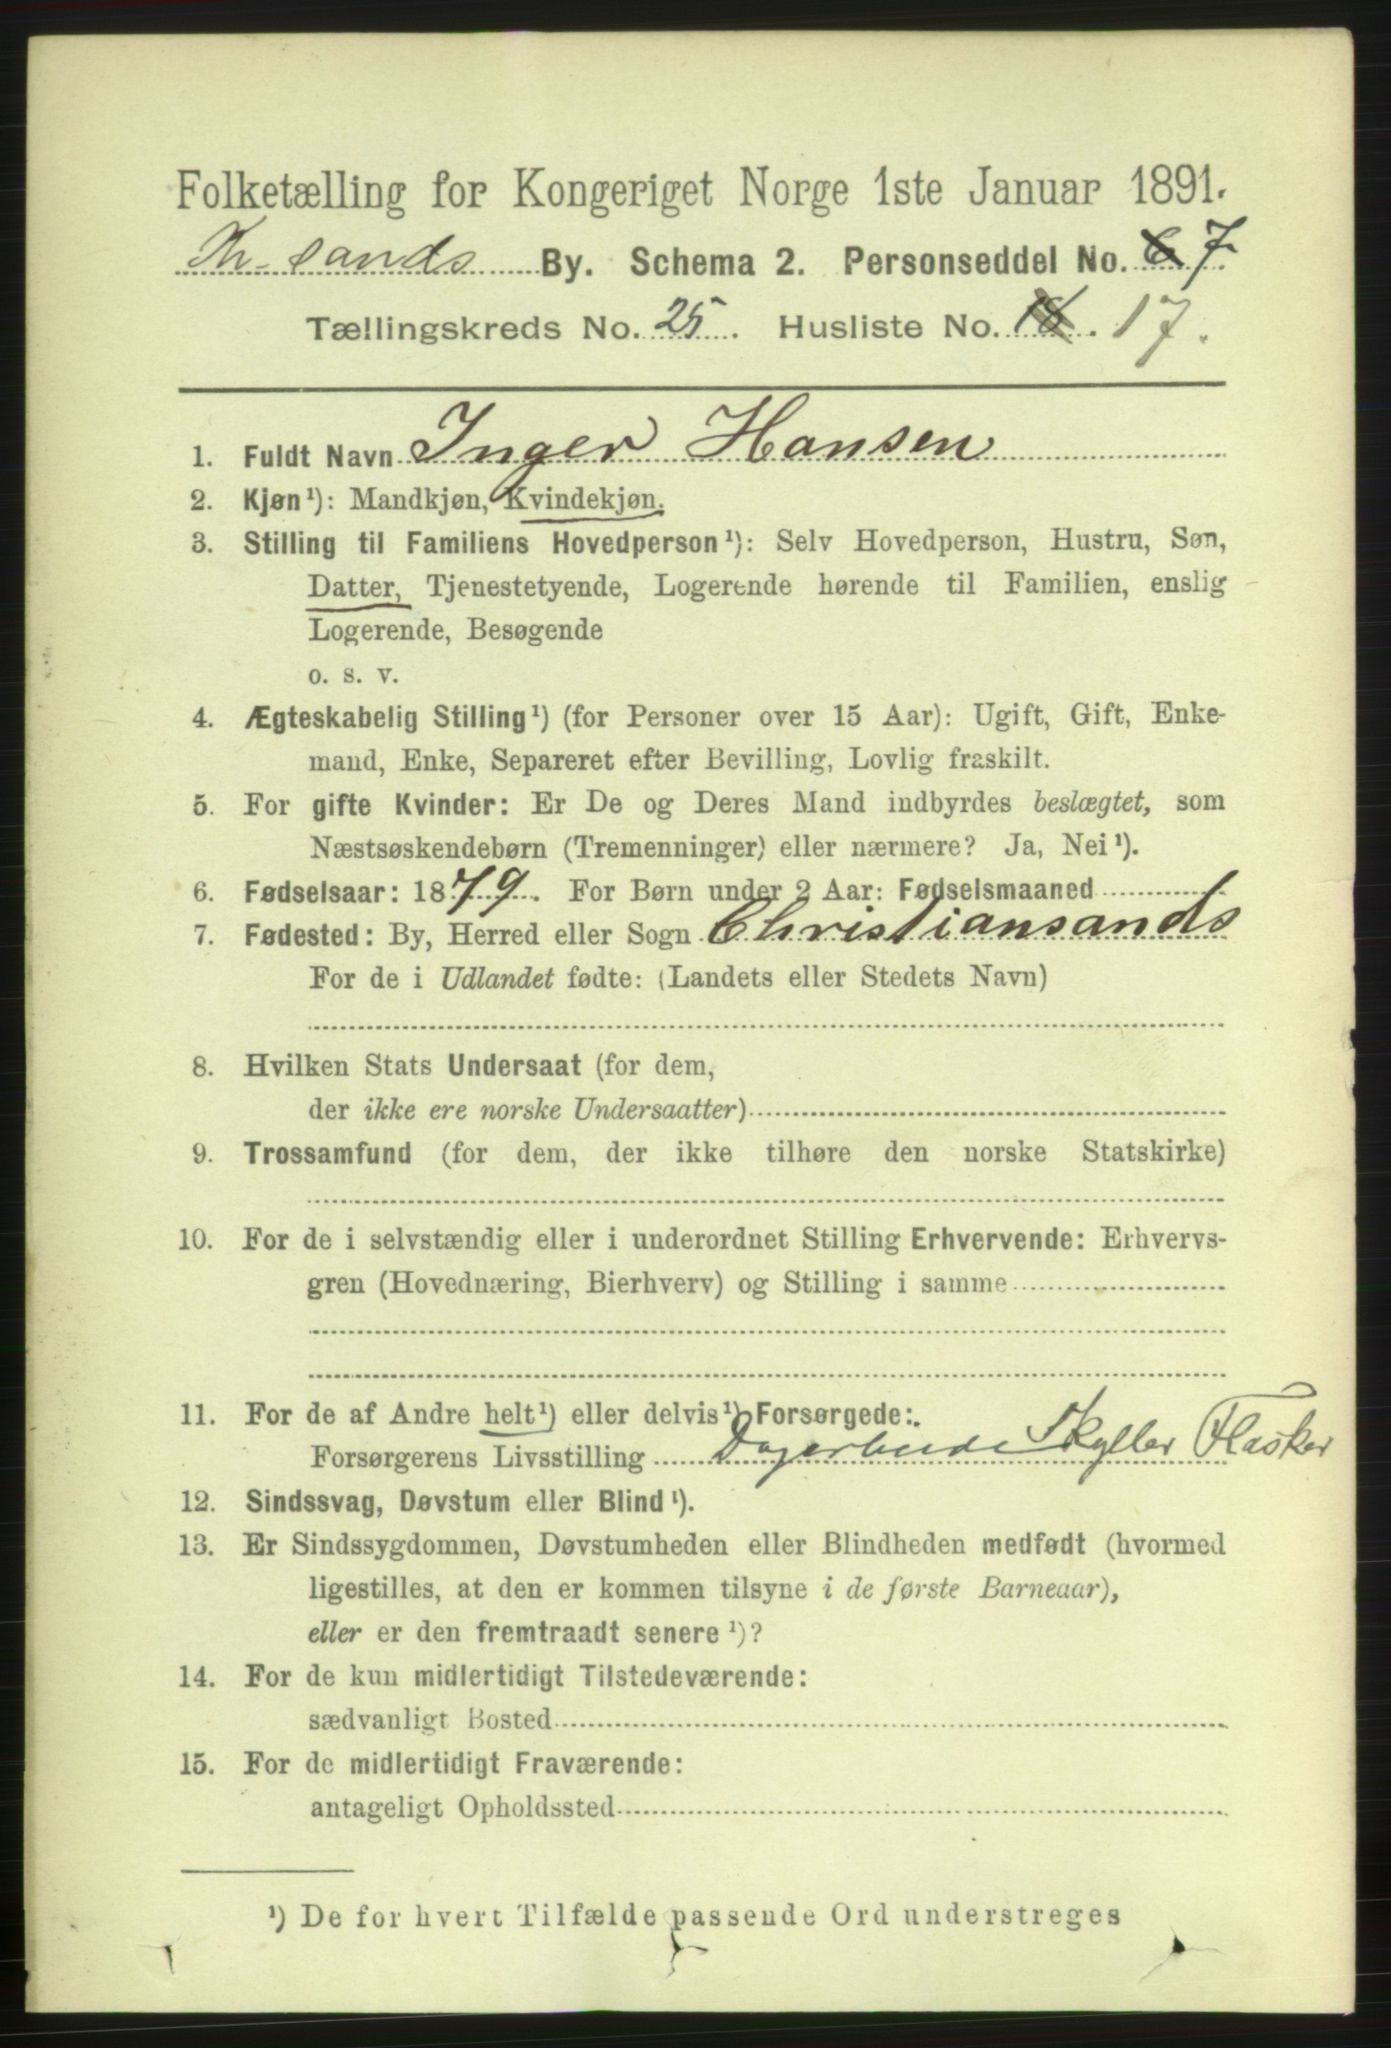 Folketælling for Kongeriget Norge 1ste Januar 1891.
Kr.sands By. Schema 2. Personseddel No. 6 7
Tællingskreds No. 25. Husliste No. 18. 17.
1. Fuldt Navn Inger Hansen
2. Kjøn¹): Mandkjøn, Kvindekjøn.
3. Stilling til Familiens Hovedperson¹): Selv Hovedperson, Hustru, Søn,
Datter, Tjenestetyende, Logerende hørende til Familien, enslig
Logerende, Besøgende
o. s. v.
4. Ægteskabelig Stilling¹) (for Personer over 15 Aar): Ugift, Gift, Enke-
mand, Enke, Separeret efter Bevilling, Lovlig fraskilt.
5. For gifte Kvinder: Er De og Deres Mand indbyrdes beslægtet, som
Næstsøskendebørn (Tremenninger) eller nærmere? Ja, Nei¹).
6. Fødselsaar: 1879. For Børn under 2 Aar: Fødselsmaaned
7. Fødested: By, Herred eller Sogn Christiansands
For de i Udlandet fødte: (Landets eller Stedets Navn)
8. Hvilken Stats Undersaat (for dem,
der ikke ere norske Undersaatter)
9. Trossamfund (for dem, der ikke tilhøre den norske Statskirke)
10. For de i selvstændig eller i underordnet Stilling Erhvervende: Erhvervs-
gren (Hovednæring, Bierhverv) og Stilling i samme
11. For de af Andre helt¹) eller delvis¹) Forsørgede:
Forsørgerens Livsstilling Skyller Flasker
12. Sindssvag, Døvstum eller Blind¹).
13. Er Sindssygdommen, Døvstumheden eller Blindheden medfødt (hvormed
ligestilles, at den er kommen tilsyne i de første Barneaar),
eller er den fremtraadt senere¹)?
14. For de kun midlertidigt Tilstedeværende:
sædvanligt Bosted
15. For de midlertidigt Fraværende:
antageligt Opholdssted
¹) De for hvert Tilfælde passende Ord understreges